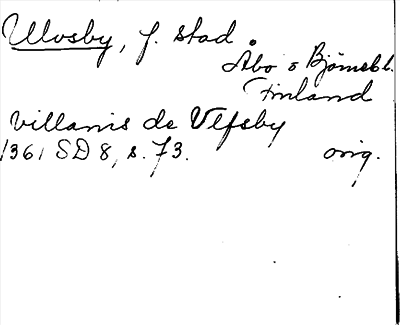 Ulvsby, f. stad
Åbo o Björnebl.
Finland
villanis de Vlfsby
1361 SD 8, s. 73. orig.